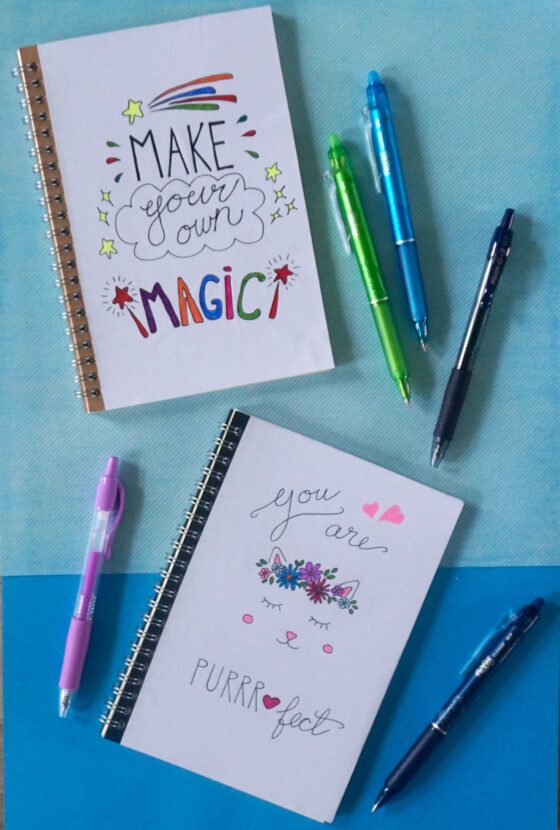 MAKE
your
own
MAGIC
you
are
PURRR
fect